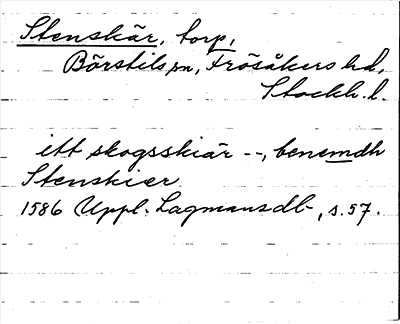 Stenskär, torp,
Börstils sn, Frösåkers hd,
Stockh. l.
itt skogsskiär --, benemdh
Stenskier
1586 Uppl. Lagmansdb, s. 57.